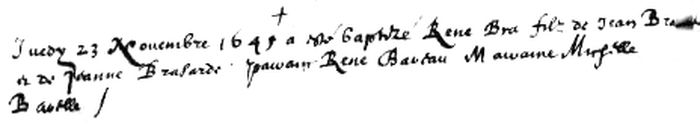 Juedy 23 Novembre 1645 a esté baptizé Rene Bra filz de Jean Bra
et de Jeanne Brasarde parain Rene Baveau Maraine
Bavelle